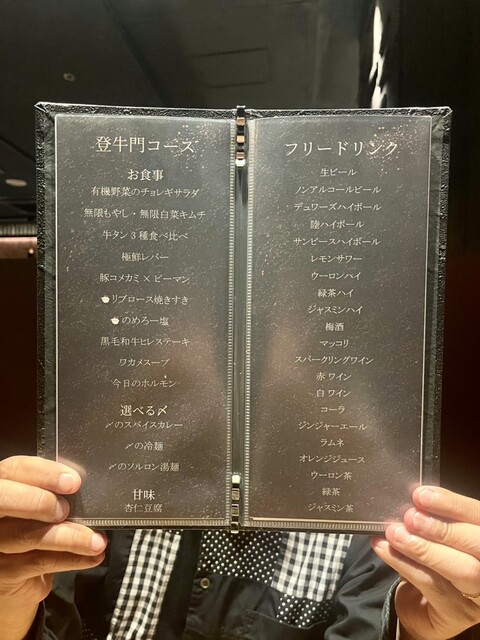 登牛門コース
お食事
有機野菜のチョレギサラダ
無限もやし・無限白菜キムチ
牛タン3種食べ比べ
極鮮レバー
豚コメカミ×ピーマン
リブロース焼きすき
のめろー塩
黒毛和牛ヒレステーキ
ワカメスープ
今日のホルモン
選べる〆
〆のスパイスカレー
〆の冷麺
〆のソルロン湯麺
甘味
杏仁豆腐
フリードリンク
生ビール
ノンアルコールビール
デュワーズハイボール
陸ハイボール
サンピースハイボール
レモンサワー
ウーロンハイ
緑茶ハイ
ジャスミンハイ
梅酒
マッコリ
スパークリングワイン
赤ワイン
白ワイン
コーラ
ジンジャーエール
ラムネ
オレンジジュース
ウーロン茶
緑茶
ジャスミン茶